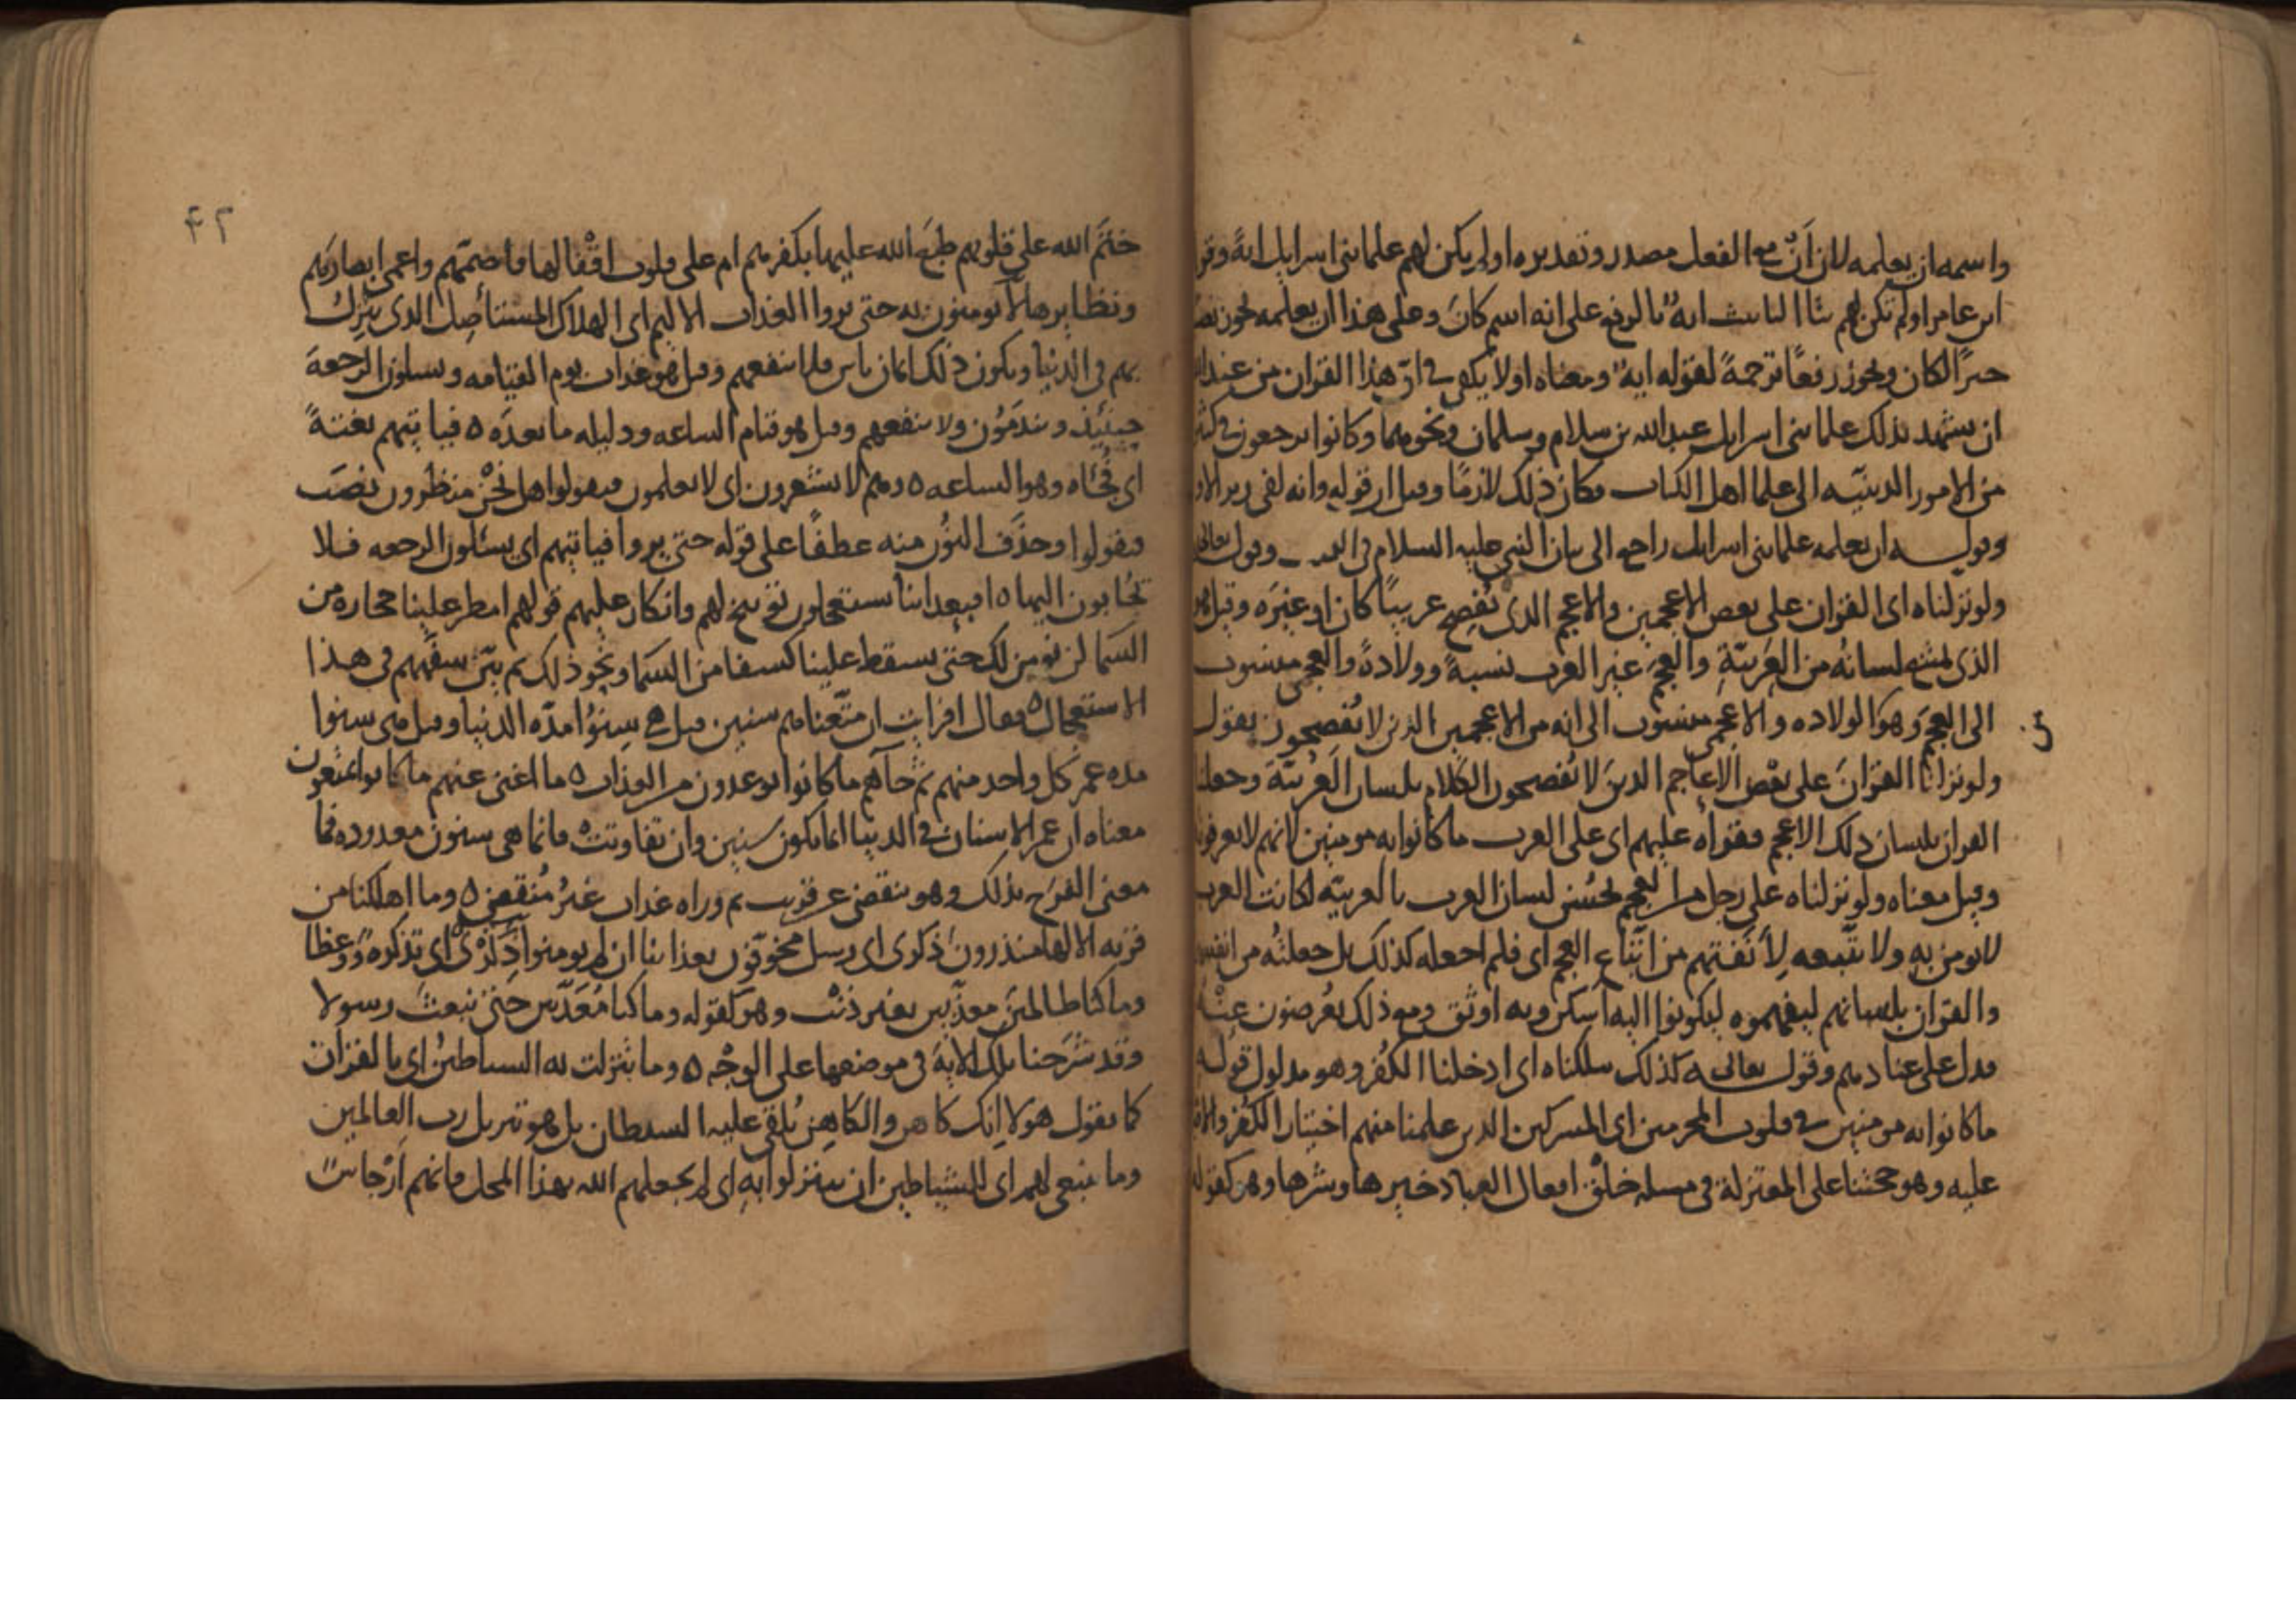 واسمه ان يعلمه لان أن مع الفعل مصدر وتقديره اولم يكن لهم علما بني اسرايل اية وقرا
ابن عامر اولم تكن لهم بتا التانيث اية بالرفع على انه اسم كان وعلى هذا ان يعلمه يجوز نصبا
خبرًا لكان ويجوز رفعًا ترجمةً لقوله اية ومعناه اولا يكفي في ان هذا القران من عند الله
ان يشهد بذلك علما بني اسرايل عبد الله بن سلام وسلمان ونحوهما وكانوا يرجعون في كثير
من الامور الدينيّه الى علما اهل الكتاب فكان ذلك لازمًا وقيل ان قوله وانه لفي زبر الاو
وقوله ان يعلمه علما بني اسرايل راجع الى بيان النبي عليه السلام في وقوله تعالى
ولو نزلناه اى القران على بعض الاعجمين والاعجم الذى يفصح عربيًا كان او غيره وقيل هو
الذي لسانه من العربيّة والعجم غير العرب نسبةً وولادةً والعجمى منسوب
الى العجم وهو الولاده والاعجمى منسوب الى انه من الاعجمين الذين لا يفصحون يقول
ى
ولو نزلنا القران على بعض الاعاجم الذين لا يفصحون الكلام بلسان العربيّة وجعلنا
القران بلسان ذلك الاعجم فقراه عليهم اى على العرب ما كانوا به مومنين لانهم لا يعرفونه
وقيل معناه ولو نزلناه على رجل من العجم يحسن لسان العرب بالعربيّه لكانت العرب
لا تومن به ولا تتّبعه لأنفتهم من اتّباع العجم اى فلم اجعله كذلك بل جعلته من انفسهم
والقران بلسانهم ليفهموه ليكونوا اليه اسكن وبه اوثق ومع ذلك يُعرضون عنه
فدل على عنادهم وقوله تعالى كذلك سلكناه اى ادخلنا الكفر وهو مدلول قوله
ما كانوا به مومنين في قلوب المجرمين اى المشركين الذين علمنا منهم اختيار الكفر والاقا
عليه وهو حجتنا على المعتزلة في مسله خلق افعال العباد خيرها وشرها وهو كقوله
٤٢
ختَم الله على قلوبهم طبَع الله عليها بكفرهم ام على قلوب اقْفالها فأصمّهم واعمى ابصارهم
ونظايرها لا يومنون به حتى يروا العذاب الاليم اى الهلاك المستأصِل الذى ينزل
بهم في الدنيا ويكون ذلك ايمان ياس فلا ينفعهم وقيل هو عذاب يوم القيامه ويسلون الرجعة
حينئِذ ويندَمُون ولا ينفعهم وقيل هو قيام الساعه ودليله ما بعده ٥ فياتيهم بغتةً
اى فُجاة وهو الساعه ٥ وهم لا يشعرون اى لا يعلمون فيقولوا هل نحْن منظرون نصَب
فيقولوا وحذَف النُّون منه عطفًا على قوله حتى يروا فياتيهم اى يسئلون الرجعه فلا
يُجابون اليها ٥ افبعذابنا يستعجلون توبيخ لهم وانكار عليهم قولهم امطر علينا حجاره من
السَّما لن نومن لك حتى تسقط علينا كسفا من السَّما ونحو ذلك ثم بيّن سفههم في هذا
الاستعجال ٥ فقال افرايت ان متّعناهم سنين قيل هي سِنوُا مدّه الدنيا وقيل هى سنوا
مده عمر كل واحد منهم ثم جاهم ما كانوا يوعدون من العذاب ٥ ما اغنى عنهم ما كانوا يمتعون
معناه ان عمر الانسان في الدنيا انما يكون سنين وان تفاوتت فانما هى سنون معدوده فما
معنى الفرح بذلك وهو ينقضى عن قريب ثم وراه عذاب غيرُ مُنقضٍ ٥ وما اهلكنا من
قرية الا لها منذرون ذكرى اى رسل مخوّفون بعذابنا ان لم يومنوا ذكرى اى تذكرةً ووعظا
وما كنا ظالمين معذّبين بغير ذنْب وهو كقوله وما كنا مُعَذّبين حتى نبعث رسولا
وقد شرَحنا تلك الاية في موضعها على الوجْه ٥ وما تنزلت به الشياطينُ اى بالقران
كما يقول هولا انك كاهن والكاهِن يُلقى عليه الشيطان بل هو تنزيل رب العالمين
وما ينبغى لهم اى للشياطين ان يتنزلوا به اى لم يجعلهم الله بهذا المحل فانهم ارْجاس